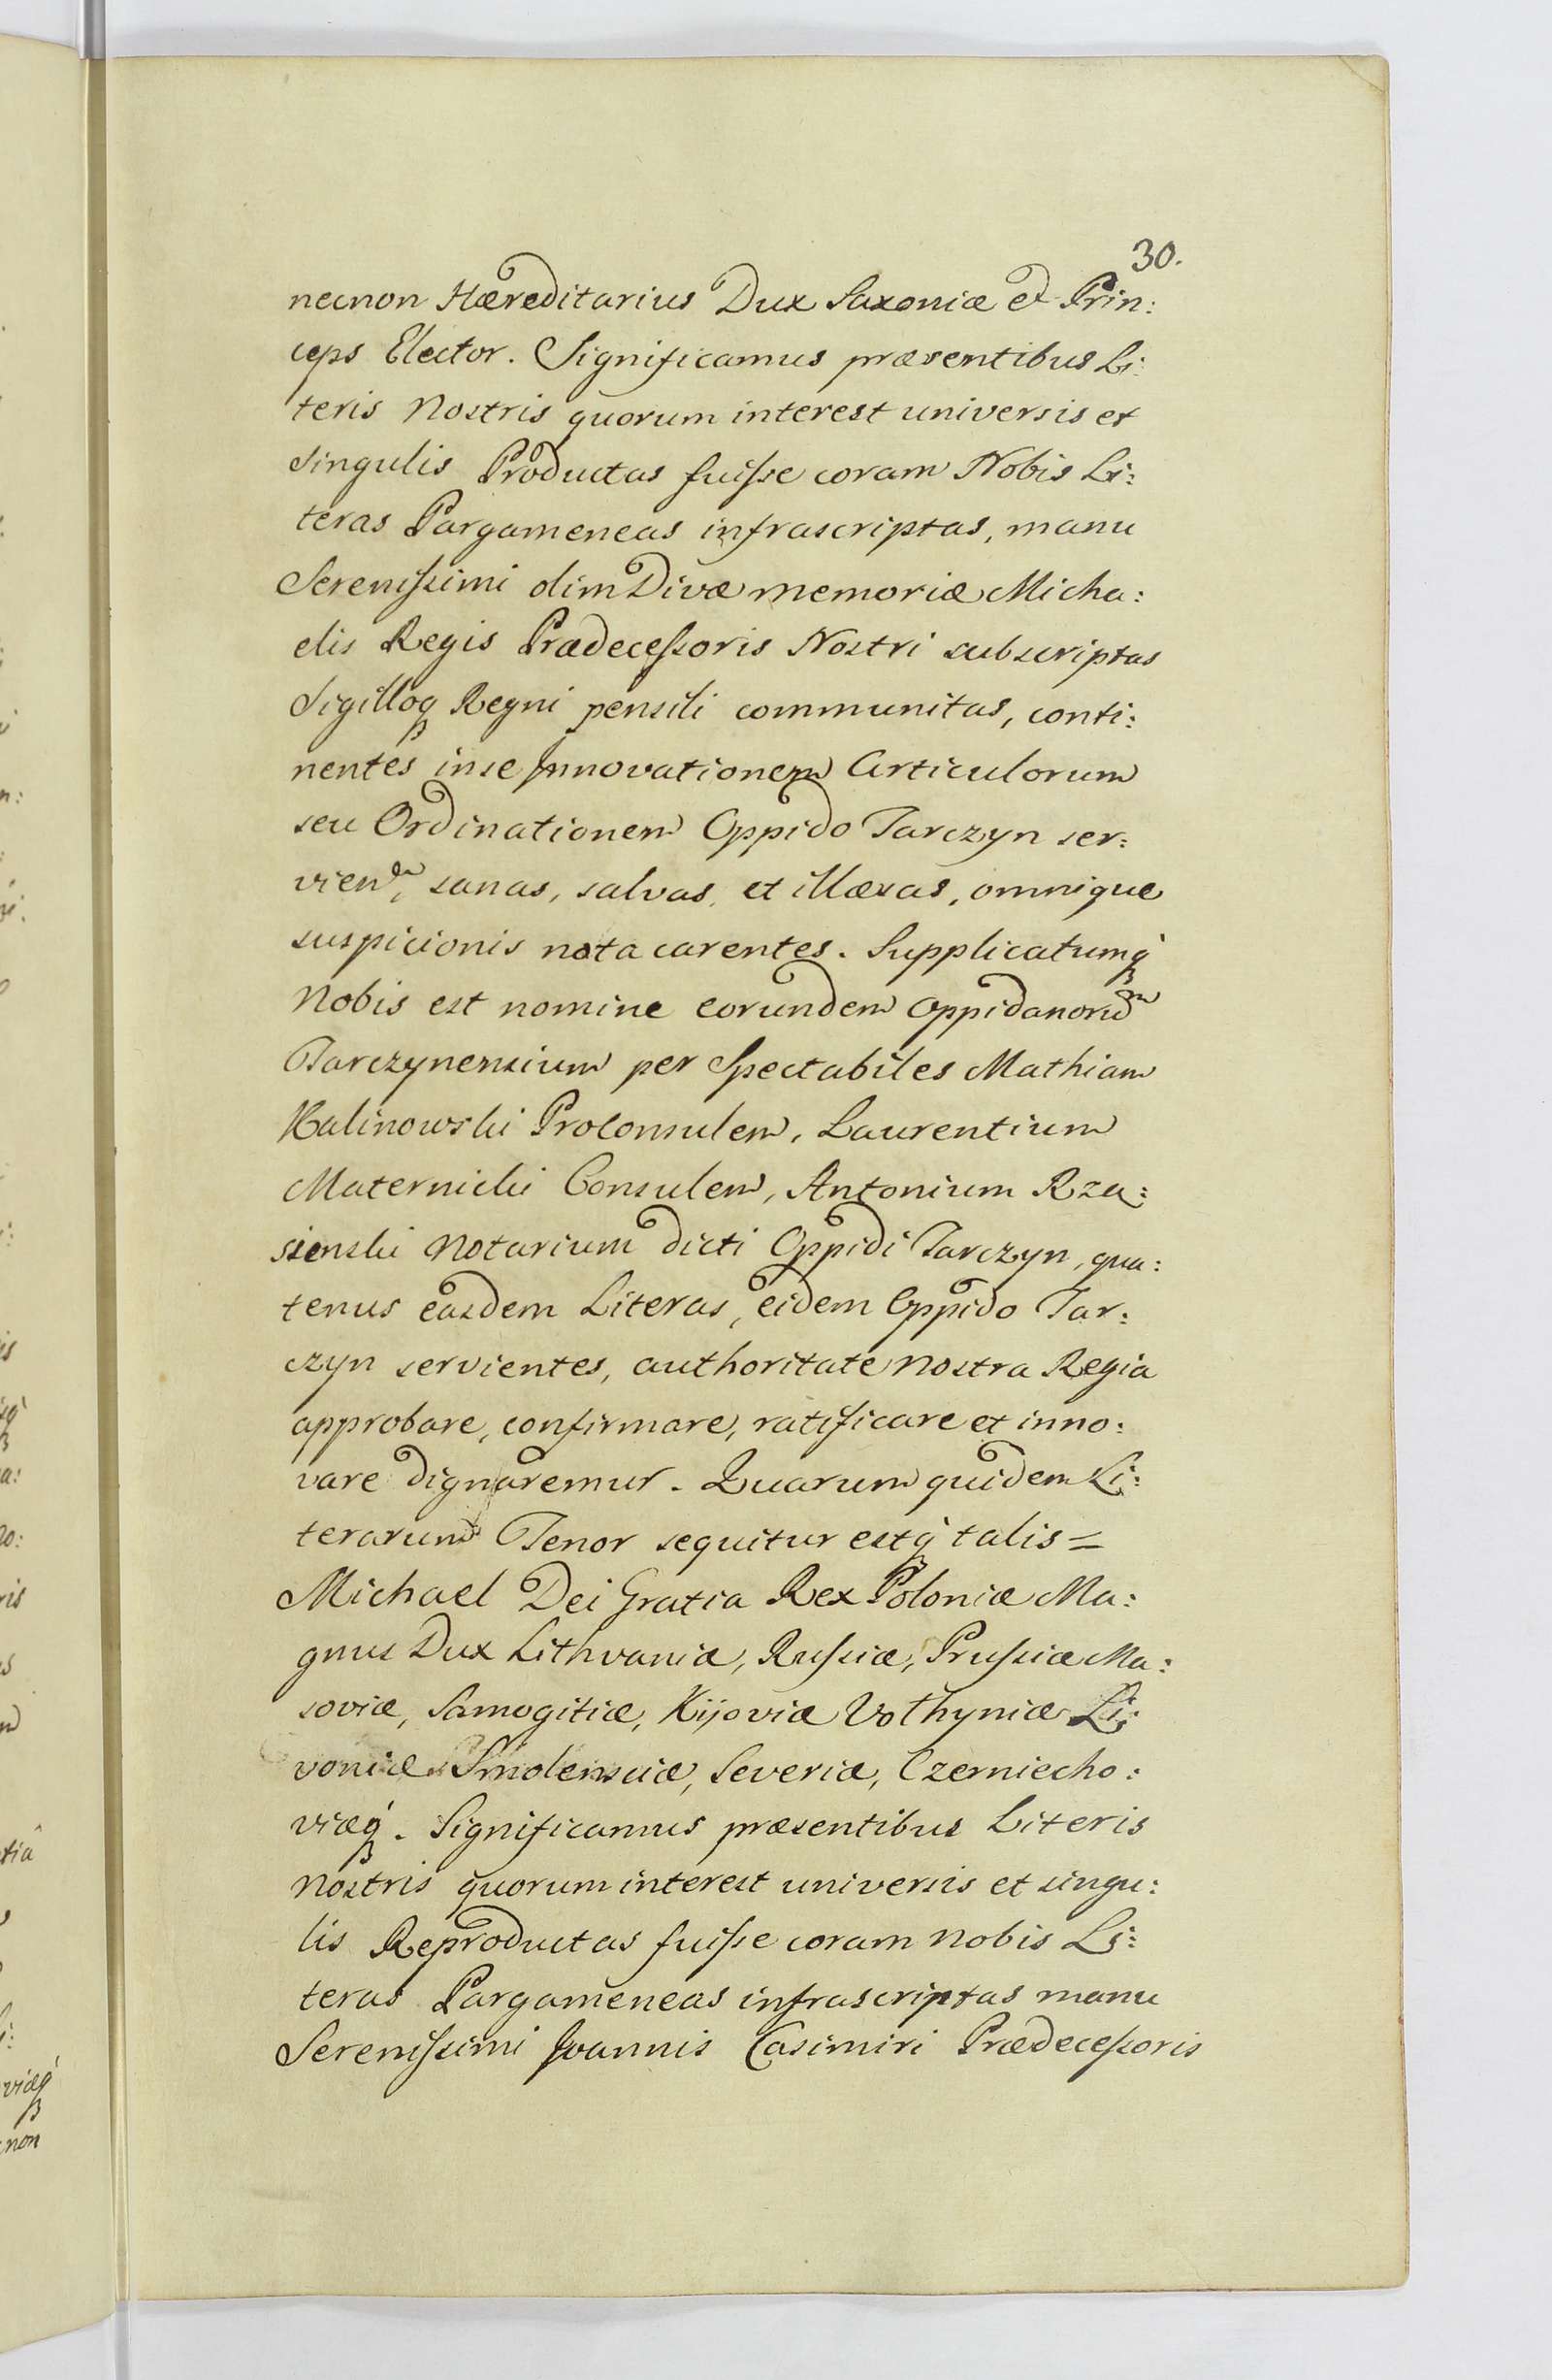 30.
necnon Hæreditarius Dux Saxoniæ et Prin:
ceps Elector. Significamus præsentibus Li:
teris Nostris quorum interest universis et
singulis Productas fuisse coram Nobis Li:
teras Pargameneas infrascriptas, manu
Serenissimi olim Divæ memoriæ Micha:
elis Regis Prædecessoris Nostri subscriptas
Sigilloq́ Regni pensili communitas, conti:
nentes in se Innovationem Articulorum
seu Ordinationem Oppido Tarczyn ser:
vien, sanas, salvas et illæsas, omnique
suspicionis nota carentes. Supplicatumq́
Nobis est nomine eorundem Oppidanorum
Tarczynensium per Spectabiles Mathiam
Kalinowski Proconsulem, Laurentium
Maternicki Consulem, Antonium Rza:
sienski Notarium dicti Oppidi Tarczyn, qua:
tenus easdem Literas, eidem Oppido Tar:
czyn servientes, authoritate nostra Regia
approbare, confirmare, ratificare et inno:
vare dignaremur. Quarum quidem Li:
terarum Tenor sequitur estq́ talis =
Michael Dei Gratia Rex Poloniæ Ma:
gnus Dux Lithvaniæ, Russiæ, Prussiæ Ma:
soviæ, Samogitiæ, Kijoviæ Volhyniæ Li:
voniæ Smolensciæ, Severiæ, Czerniecho:
viæq́. Significamus præsentibus Literis
nostris quorum interest universis et singu:
lis Reproductas fuisse coram nobis Li:
teras Pargameneas infrascriptas manu
Serenissimi Joannis Casimiri Prædecessoris